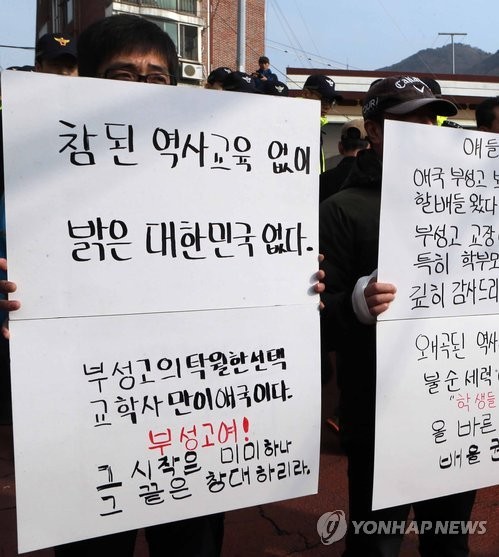 참된 역사교육 없이
밝은 대한민국 없다.
부성고의 탁월한 선택
교학사 만이 애국이다.
부성고여!
그 시작은 미미하나
그 끝은 창대하리라.
얘들
애국 부성고
할배들 왔다
부성고 교장
특히 학부모
깊히 감사드리
오왜곡된 역사
불순 세력
"학생들
올바른
배울 권
YONHAP NEWS